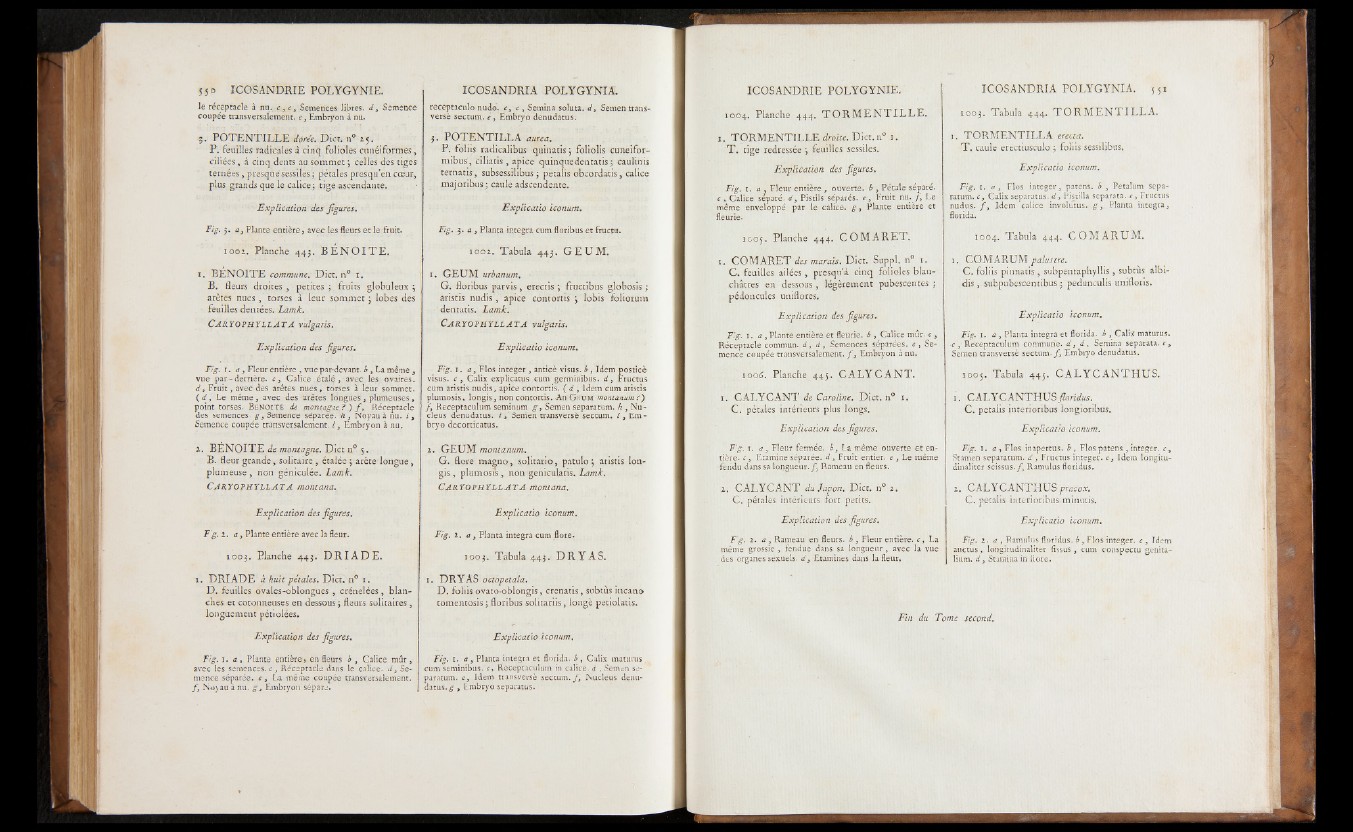 550 ICOSANDRIE POLYGYNIE.
le réceptacle à nu. c, c, Semences libres. d, Semence
coupée transversalement. e, Embryon à nu.
3. POTENTILLE dorée. Dict. n° 25.
P. feuilles radicales à cinq folioles cunéiformes,
ciliées, à cinq dents au sommet ; celles des tiges
ternées, presque sessiles ; pétales presqu'en cœur,
plus grands que le calice ; tige ascendante.
Explication des figures.
Fig. 3. a, Plante entière, avec les fleurs et le fruit.
1002. Planche 443. BÉNOITE.
1. BÉNOITE commune. Dict. n° 1.
B. fleurs droites, petites ; fruits globuleux ;
arètes nues, torses à leur sommet ; lobes des
feuilles dentées. Lamk.
CARYOPHYLLATA vulgaris.
Explication des figures.
Fig. 1. a, Fleur entière, vue par-devant. b, La même,
vue par-derrière. c, Calice étalé, avec les ovaires.
d, Fruit, avec des arètes nues, torses à leur sommet.
( d, Le même, avec des arètes longues, plumeuses,
point torses. BÉNOITE de montagne ? ) f, Réceptacle
des semences g, Semence séparée. h, Noyau à nu. i,
Semence coupée transversalement l, Embryon à nu.
2. BÉNOITE de montagne. Dict n° 5.
B. fleur grande, solitaire, étalée ; arète longue,
plumeuse, non géniculée. Lamk.
CARYOPHYLLATA montana.
Explication des figures.
Fig. 2. a, Plante entière avec la fleur.
1003. Planche 443. DRIADE.
1. DRIADE à huit pétales. Dict. n° 1.
D. feuilles ovales-oblongues, crénelées, blan-
ches et cotonneuses en dessous ; fleurs solitaires,
longuement pétiolées.
Explication des figures.
Fig. 1. a, Plante entière, en fleurs b, Calice mûr,
avec les semences. c, Réceptacle dans le calice. d, Se-
mence séparée. e, La même coupée transversalement.
f, Noyau à nu. g, Embryon séparé.
ICOSANDRIA POLYGYNIA.
receptaculo nudo. c, c, Semina soluta. d, Semen trans-
versè sectum. e, Embryo denudatus.
3. POTENTILLA aurea.
P. foliis radicalibus quinatis ; foliolis cuneifor-
mibus, ciliatis, apice quinquedentatis ; caulinis
ternatis, subsessilibus ; petalis obcordatis, calice
majoribus ; caule adscendente.
Explicatio iconum.
Fig. 3. a, Planta integra cum floribus et fructu.
1002. Tabula 443. GEUM.
1. GEUM urbanum.
G. floribus parvis, erectis ; fructibus globosis ;
aristis nudis, apice contortis ; lobis foliorum
dentatis. Lamk.
CARYOPHYLLATA vulgaris.
Explicatio iconum.
Fig. 1. a, Flos integer, anticè visus. b, Idem posticè
visus. c, Calix explicatus cum germinibus. d, Fructus
cum aristis nudis, apice contortis. ( d, Idem cum aristis
plumosis, longis, non contortis. An GEUM montanum ? )
f, Receptaculum seminum g, Semen separatum. h, Nu-
cleus denudatus. i, Semen transversè sectum. l, Em-
bryo decorticatus.
2. GEUM montanum.
G. flore magno, solitario, patulo ; aristis lon-
gis, plumosis, non geniculatis. Lamk.
CARYOPHYLLATA montana.
Explicatio iconum.
Fig. 2. a, Planta integra cum flore.
1003. Tabula 443. DRYAS.
1. DRYAS octopetala.
D. foliis ovato-oblongis, crenatis, subtùs incano
tomentosis ; floribus solitariis, longè petiolatis.
Explicatio iconum.
Fig. 1. a, Planta integra et florida. b, Calix maturus
cum seminibus. c, Receptaculum in calice. d, Semen se-
paratum. e, Idem transversè sectum. f, Nucleus denu-
datus. g, Embryo separatus.
ICOSANDRIE POLYGYNIE.
1004. Planche 444. TORMENTILLE.
1. TORMENTILLE droite. Dict. n° 1.
T. tige redressée ; feuilles sessiles.
Explication des figures.
Fig. 1. a, Fleur entière, ouverte. b, Pétale séparé.
c, Calice séparé d, Pistils séparés. e, Fruit nu. f, Le
même enveloppé par le calice. g, Plante entière et
fleurie.
1005. Planche 444. COMARET.
1. COMARET des marais. Dict. Suppl. n° 1.
C. feuilles ailées, presqu'à cinq folioles blan-
châtres en dessous, légèrement pubescentes ;
pédoncules uniflores.
Explication des figures.
Fig. 1. a, Plante entière et fleurie. b, Calice mûr. c,
Réceptacle commun. d, d, Semences séparées. e, Se-
mence coupée transversalement. f, Embryon à nu.
1006. Planche 445. CALYCANT.
1. CALYCANT de Caroline. Dict. n° 1.
C. pétales intérieurs plus longs.
Explication des figures.
Fig. 1. a, Fleur fermée. b, La même ouverte et en-
tière. c, Etamine séparée. d, Fruit entier. e, Le même
fendu dans sa longueur. f, Rameau en fleurs.
2. CALYCANT du Japon. Dict. n° 2.
C. pétales intérieurs fort petits.
Explication des figures.
Fig. 2. a, Rameau en fleurs. b, Fleur entière. c, La
même grossie, fendue dans sa longueur, avec la vue
des organes sexuels d, Etamines dans la fleur.
ICOSANDRIA POLYGYNIA. 551
1003. Tabula 444. TORMENTILLA.
1. TORMENTILLA erecta.
T. caule erectiusculo ; foliis sessilibus.
Explicatio iconum.
Fig. 1. a, Flos integer, patens. b, Petalum sepa-
ratum. c, Calix separatus. d, Pistilla separata. e, Fructus
nudus. f, Idem calice involutus. g, Planta integra,
florida.
1004. Tabula 444. COMARUM.
1. COMARUM palustre.
C. foliis pinnatis, subpentaphyllis, subtùs albi-
dis, subpubescentibus ; pedunculis unifloris.
Explicatio iconum.
Fig. 1. a, Planta integra et florida. b, Calix maturus.
c, Receptaculum commune. d, d, Semina separata. e,
Semen transversè sectum. f, Embryo denudatus.
1005. Tabula 445. CALYCANTHUS.
1. CALYCANTHUS floridus.
C. petalis interioribus longioribus.
Explicatio iconum.
Fig. 1. a, Flos inapertus. b, Flos patens, integer. c,
Stamen separatum. d, Fructus integer. e, Idem longitu-
dinaliter scissus. f, Ramulus floridus.
2. CALYCANTHUS præcox.
C. petalis interioribus minutis.
Explicatio iconum.
Fig. 2. a, Ramulus floridus. b, Flos integer. c, Idem
auctus, longitudinaliter fissus, cum conspectu genita-
lium. d, Stamina in flore.
Fin du Tome second.